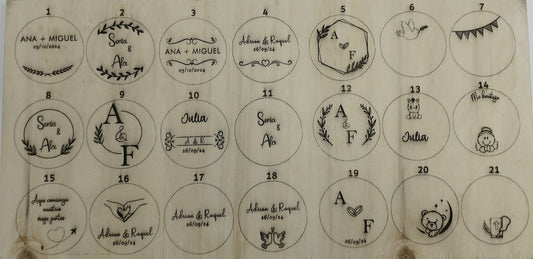 1
2
3
4
5
6
7
ANA + MIGUEL
05/10/2024
Sonia
&
Alex
ANA + MIGUEL
05/10/2024
Adrian & Raquel
26/09/24
A
F
8
9
10
11
12
13
14
Sonia
&
Alex
A
&
F
Julia
A & R
26/09/24
Sonia
&
Alex
A
&
F
Julia
Mi bautizo
15
16
17
18
19
20
21
Aqui comienza
nuestro
viaje juntos
Adrian & Raquel
26/09/24
Adrian & Raquel
26/09/24
Adrian & Raquel
26/09/24
A
F
26/09/24